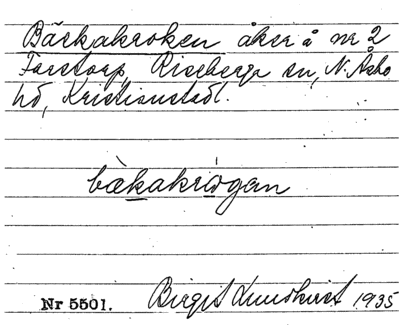 Bäckakroken åker å nr 2
Farstorp, Riseberga sn, N. Åsbo
hd, Kristianstad l.
bækakrogan
Nr 5501. Birgit Lundkvist 1935